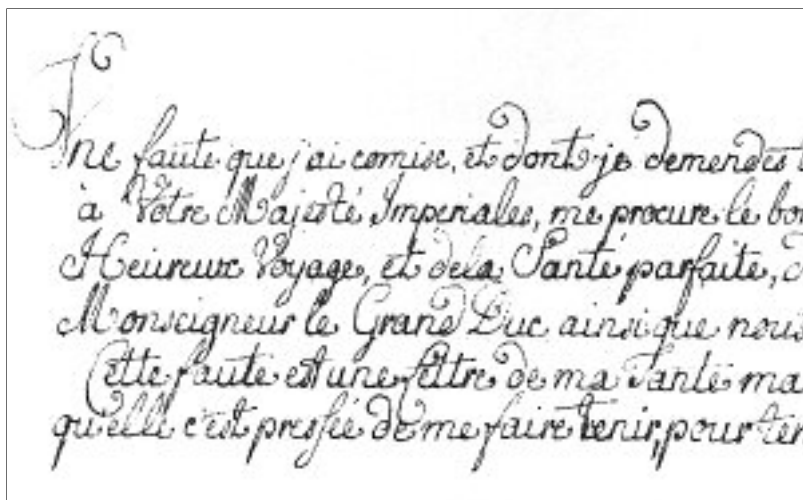 Une faute que j'ai comise, et dont je demendes
à Votre Majesté Imperiales, me procure le
Heureux Voyage, et dela Santé parfaite,
Monseigneur le Grand Duc ainsi que nous
Cette faute est une lettre de ma Santé ma
qu'elle c'est pressée de me faire tenir, pour